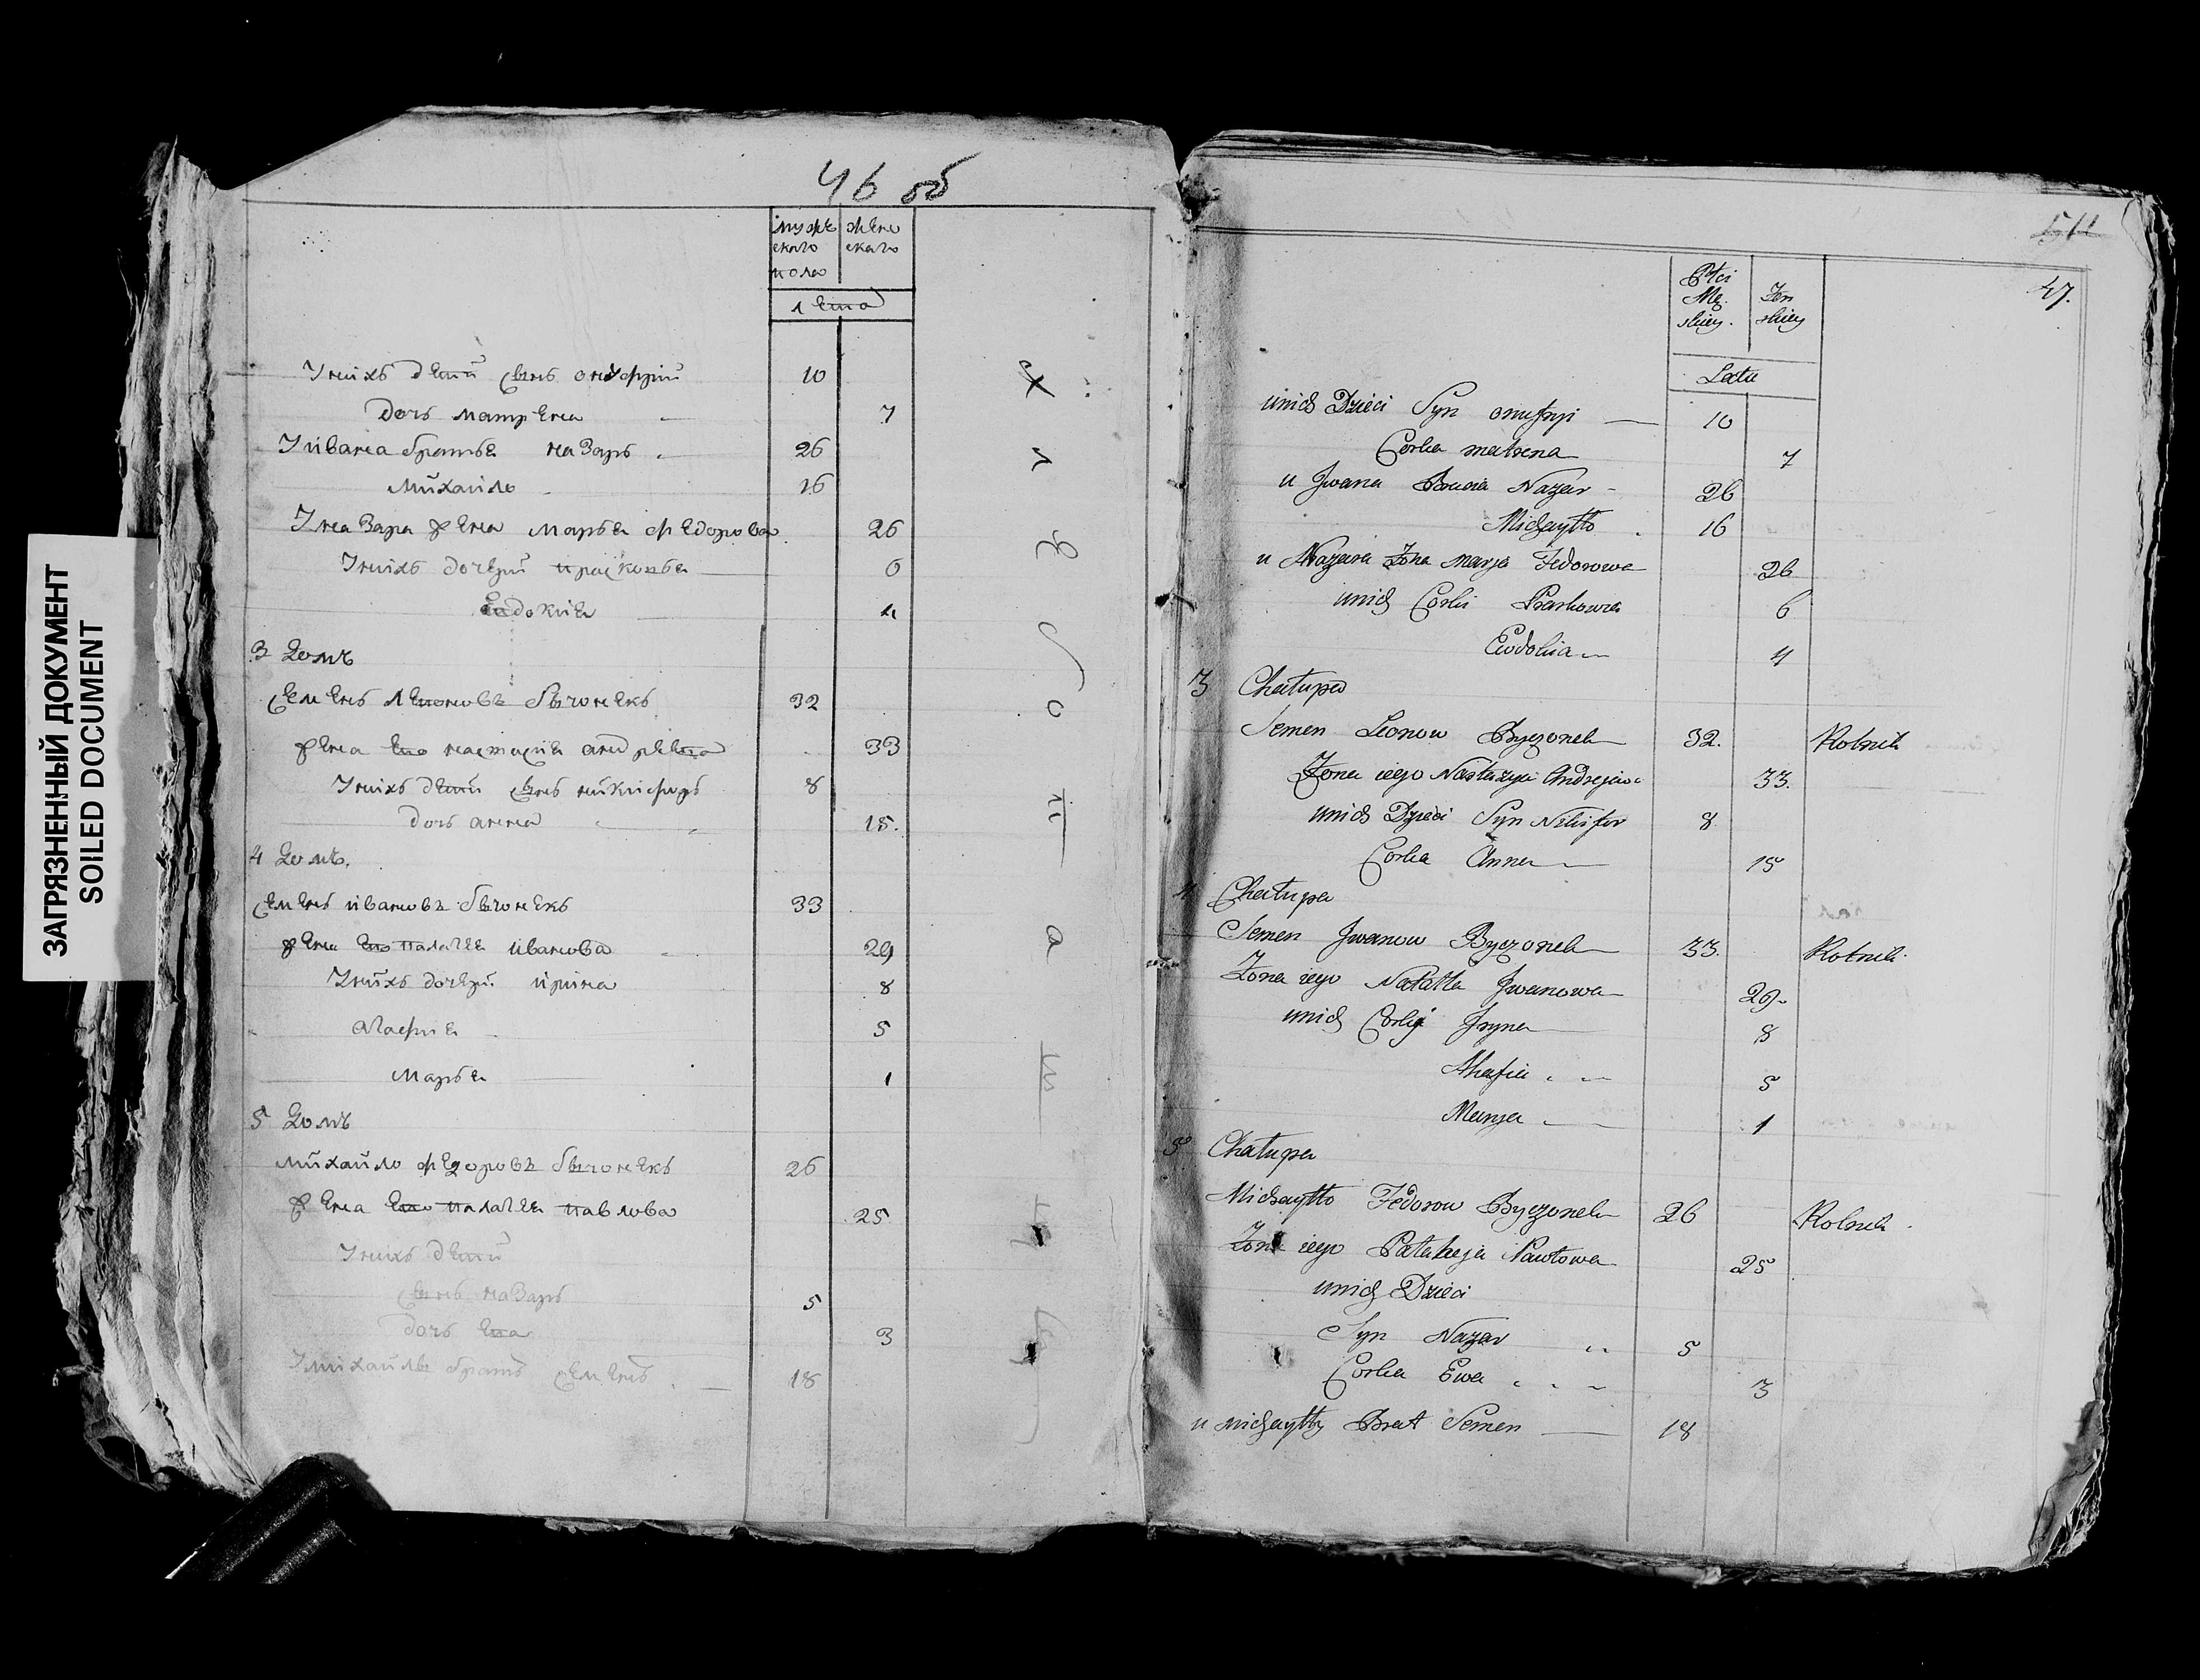 ЗАГРЯЗНЕННЫЙ ДОКУМЕНТ
SOILED DOCUMENT
46 об
мужескаго пола
женскаго
лета
У нихъ дети сынъ онуфрий 10
дочь матрена 7
У ивана братья назаръ 26
михайло 16
У назара жена марья федорова 26
У нихъ дочери прасковья 6
евдокия 4
3 Домъ
семенъ леоновъ бычонекъ 32
жена его настасия андреева 33
У нихъ дети сынъ никифоръ 8
дочь анна 15.
4 Домъ.
семенъ ивановъ бычонекъ 33
жена его палагея иванова 29
У нихъ дочери ирина 8
агафия 5
Марья 1
5 Домъ
михайло федоровъ бычонекъ 26
жена его палагея павлова 25
У нихъ дети
сынъ назаръ 5
дочь ева 3
У михайлы братъ семенъ 18
х
л
е
б
о
п
а
ш
47.
Płci Mę skiey.
Żen skiey
Latu
u nich Dzieci Syn onufryi 10
Corka matrena 7
u Jwana Bracia Nazar 26
Michayłło 16
u Nazara Żona marja Fedorowa 26
u nich Corki Praskowia 6
Ewdokia 4
3 Chałupa
Semen Leonow Byczonek 32. Rolnik
Żona iego Nastazya Andrejewa 33.
u nich Dzieci Syn Nikifor 8
Corka Anna 15
4 Chałupa
Semen Jwanow Byczonek 33. Rolnik.
Żona iego Jwanowa 29.
u nich Corki Jryna 8
Ahafia 5
Marya 1
5 Chałupa
Michayłło Fedorow Byczonek 26 Rolnik
Żona iego Pałaheja Pawłowa 25
u nich Dzieci
Syn Nazar 5
Corka Ewa 3
u michayłły Brat Semen 18